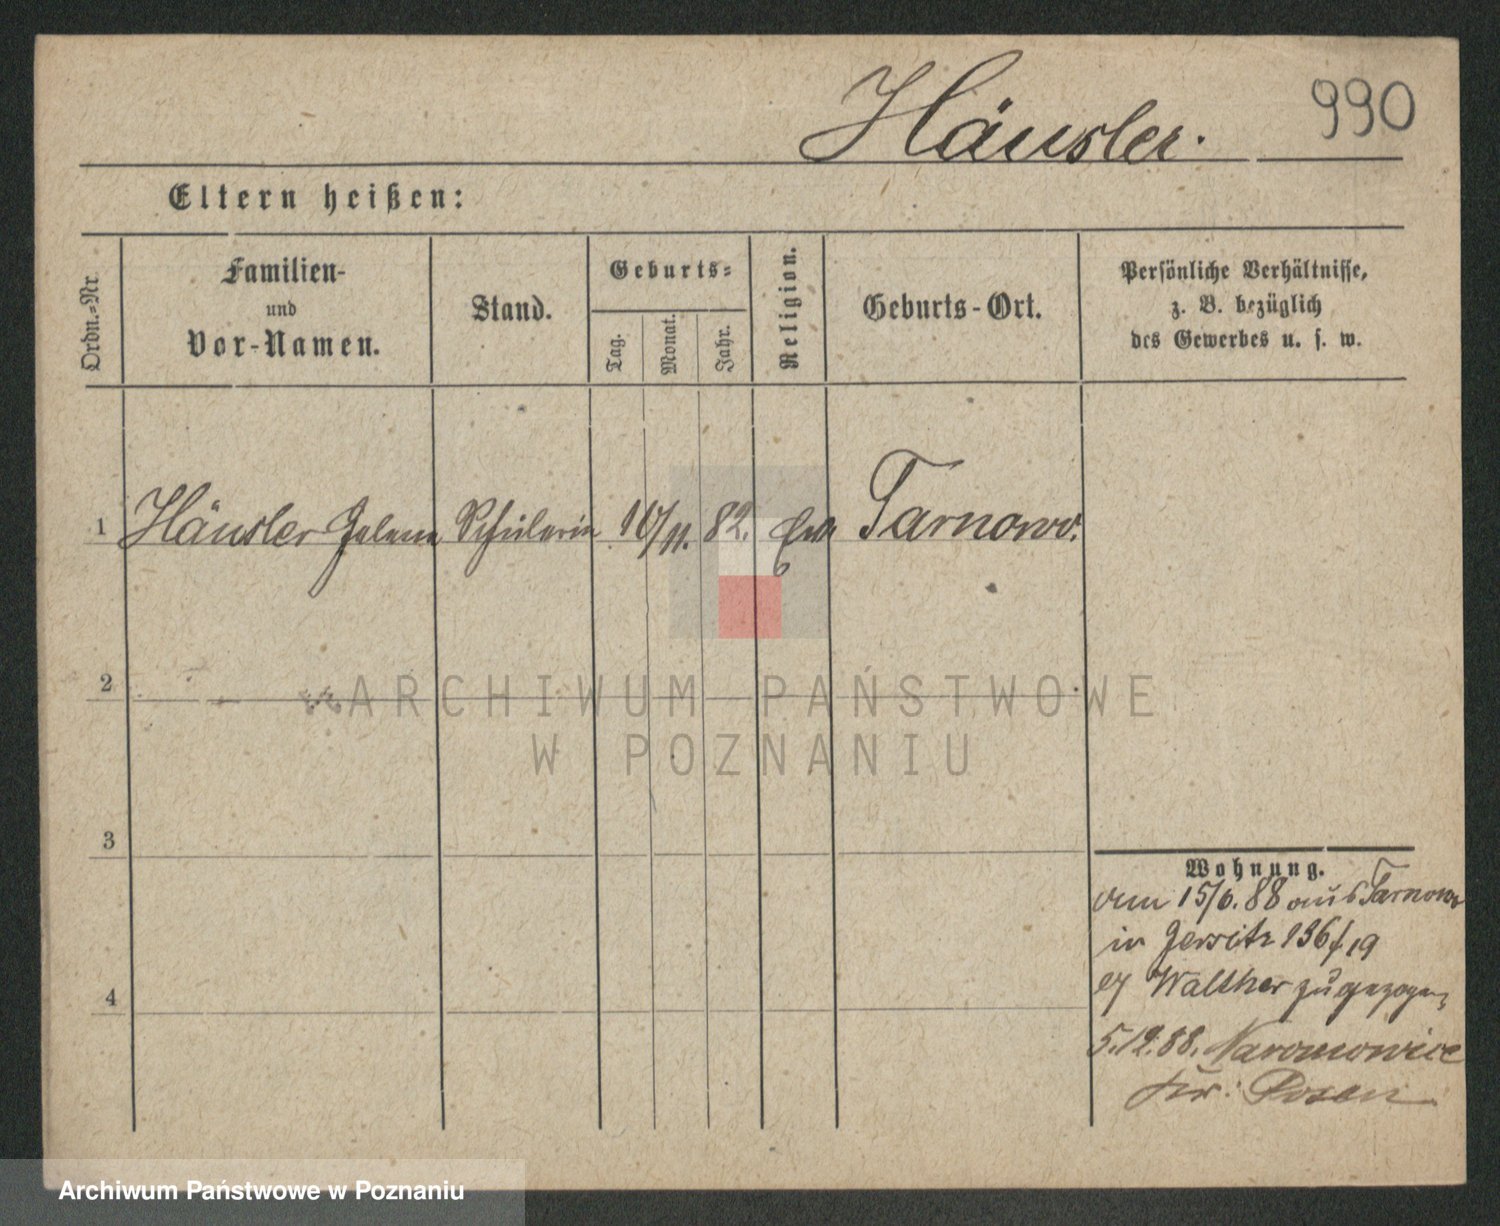 Häusler.
990
Eltern heißen:
Ordn.-Nr
Familien-
und
Vor-Namen.
Stand.
Geburts-
Tag.
Monat.
Jahr.
Religion.
Geburts-Ort.
Persönliche Verhältnisse,
z. B. bezüglich
des Gewerbes u. s. w.
1 Häusler Helene Schülerin 10/11. 82. Tarnowo.
2
ARCHIWUM PAŃSTWOWE
W POZNANIU
3
4
Wohnung.
am 15/6. 88 aus Tarnowo
in Jersitz 136/19
Walther zugezogen
5.12.88. Naramowice
Kr: Posen
Archiwum Państwowe w Poznaniu